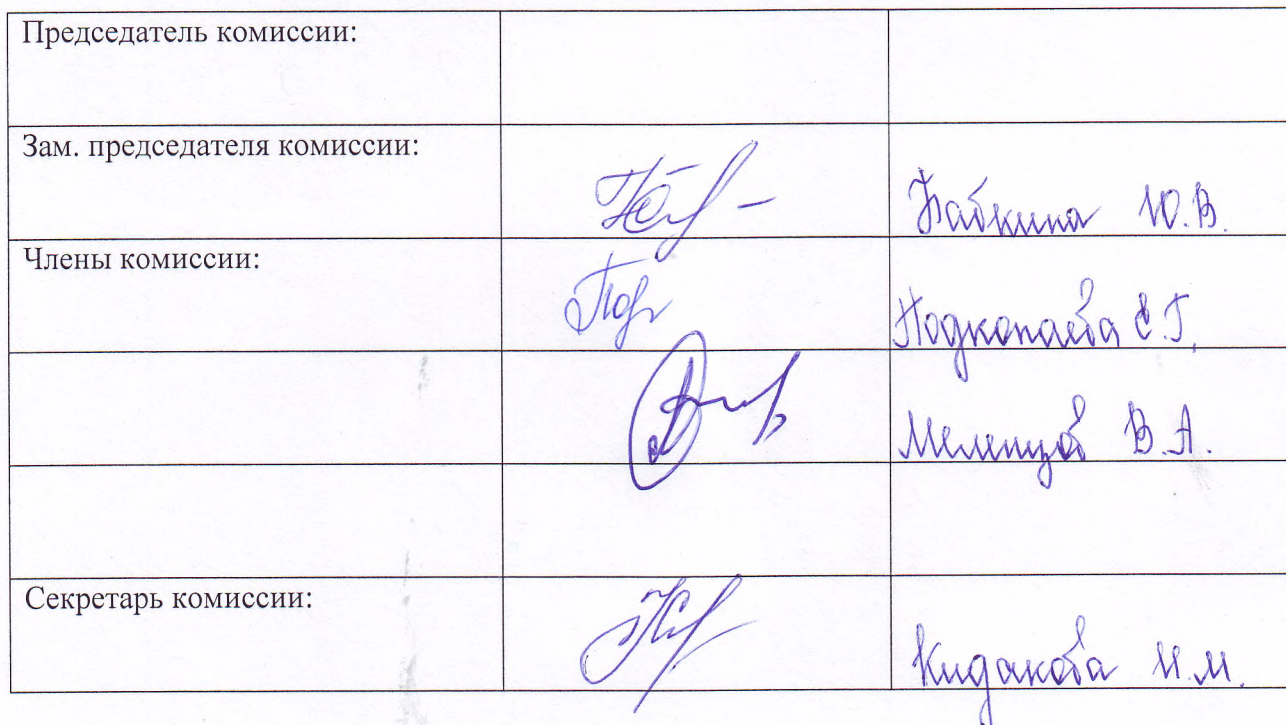 Председатель комиссии:
Зам. председателя комиссии:
Бабкина Ю.В.
Члены комиссии:
Подкопаева Е.Г.
Мелентцов В.А.
Секретарь комиссии:
Кидакова И.М.